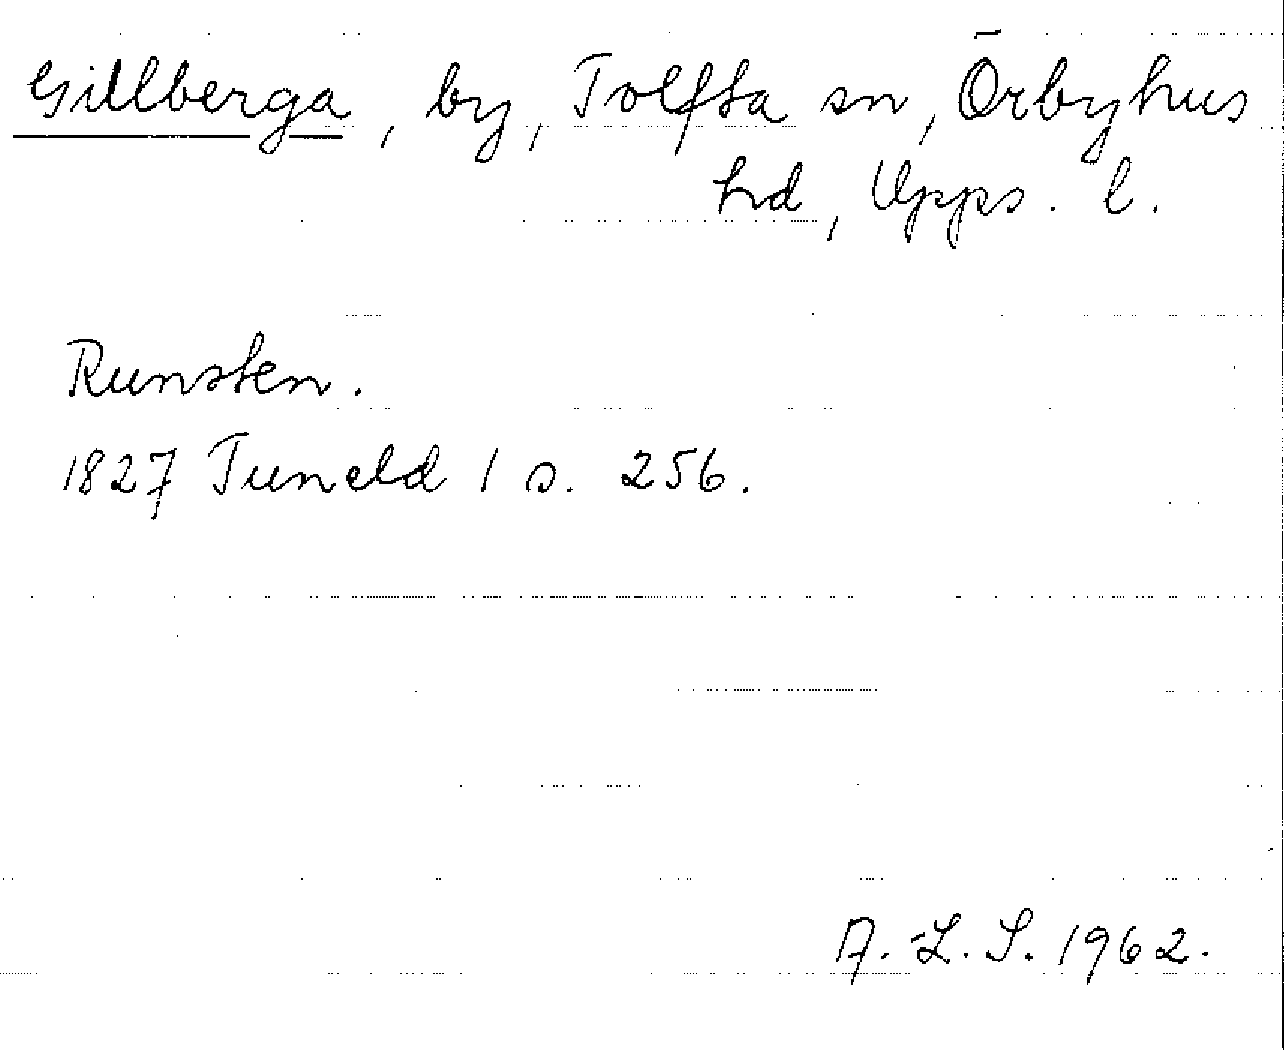 Gillberga, by, Tolfta sn, Örbyhus
hd, Upps. l.
Runsten.
1827 Tuneld 1 s. 256.
A.-L. S. 1962.